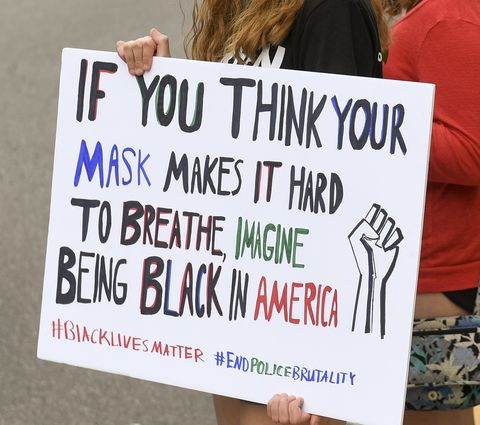 IF YOU THINK YOUR
MASK MAKES IT HARD
TO BREATHE, IMAGINE
BEING BLACK IN AMERICA
#BLACKLIVESMATTER #ENDPOLICEBRUTALITY